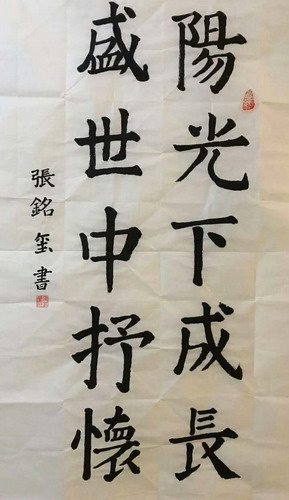 陽光下成長
盛世中抒懷
張銘玺書